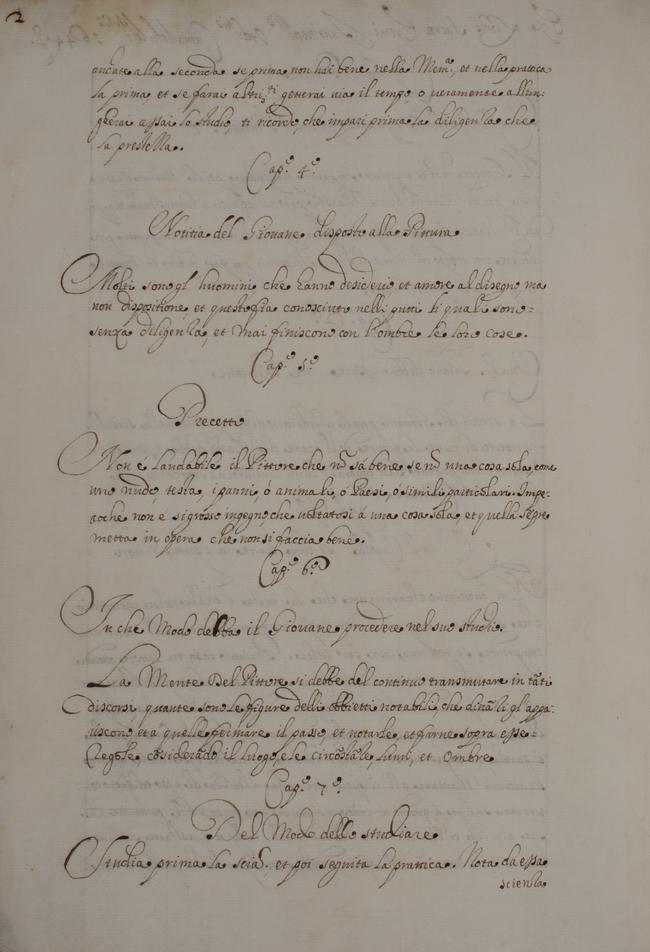 2
oncate alla seconda se prima non hai bene nella Mem.ª, et nella prattica
la prima et se farai altri.ti getterai via il tempo o veramente allun-
gherai assai lo studio, ti ricordo, che impari prima la diligenza che
la prestezza.
Cap.º 4.º
Notitia del Giovane disposto alla Pittura
Molti sono gl' huomini che hanno desiderio et amore al disegno, ma
non dispositione, et questo fia conosciuto nelli putti li quali sono-
senza diligenza, et mai finiscono con l'ombre le loro cose.
Cap.º 5.º
Precetto
Non é laudabile il Pittore che nõ sà bene se nõ una cosa sola, come
uno nudo, testa, i panni, ò animali, ò Paesi, ò simili particolari. Impe-
roche non é si grosso ingegno, che voltatosi à una cosa sola, et quella sẽpre
metta in opera che non si faccia bene.
Cap.º 6.º
In che Modo debba il Giovane procedere nel suo studio.
La Mente Del Pittore si debbe del continuo transmutare in tãti
discorsi, quante sono le figure delli obbietti notabili, che dinãzi gl'appa-
riscono, et a quelle fermare il passo, et notarle, et farne sopra esse-
Regole cõsiderãdo il luogo, e le circõstãze, lumi, et Ombre
Cap.º 7.º
Del Modo dello studiare
Studia prima la sciã. et poi seguita la prattica. Nota da essa
scienza